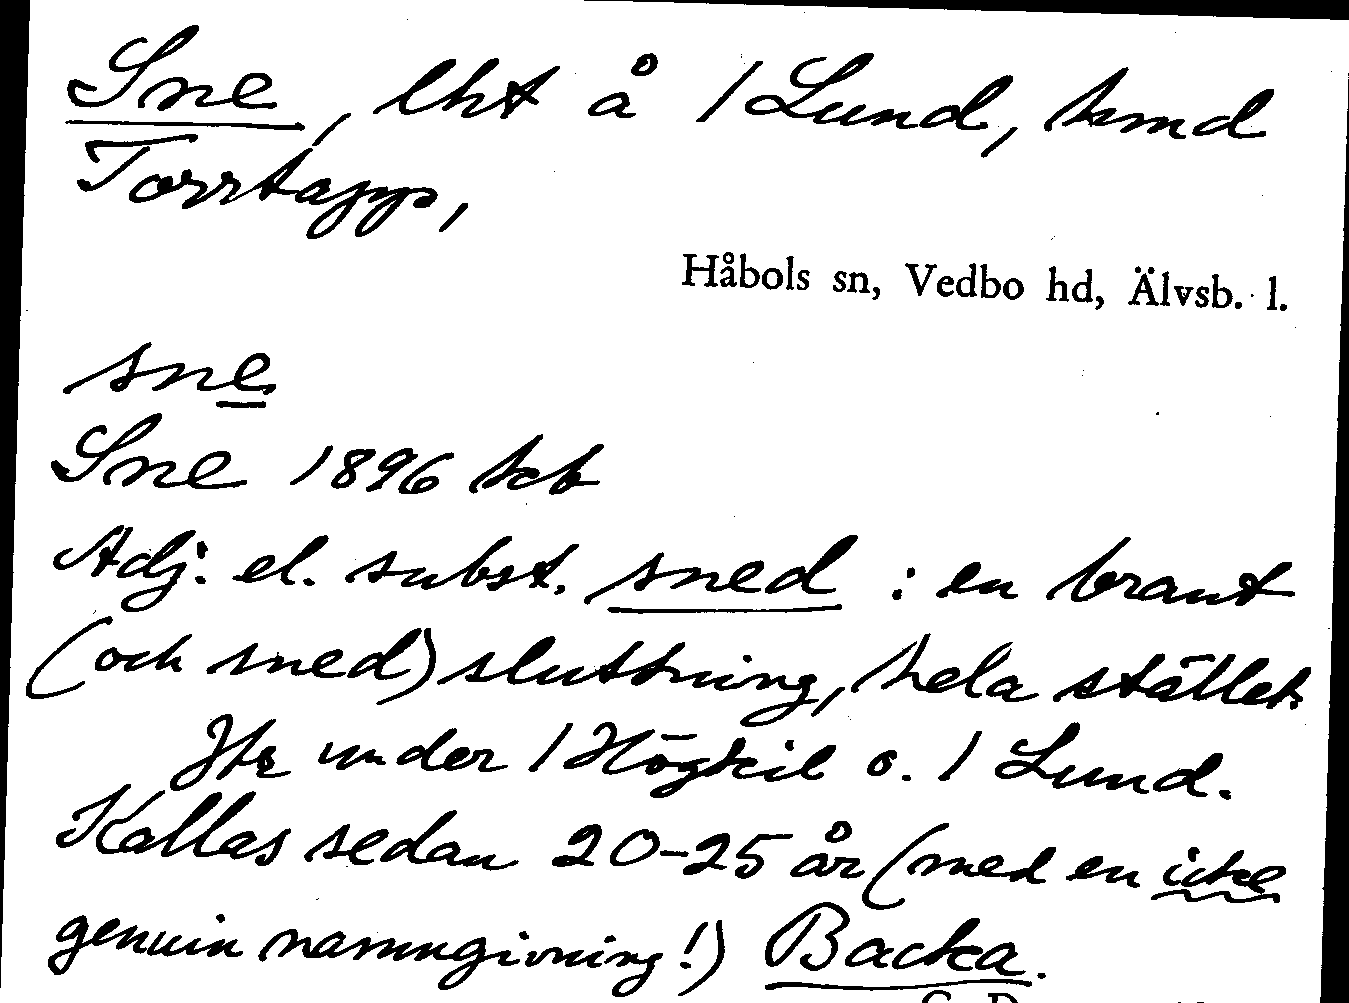 Sne, lht å 1 Lund, kmd
Torrtapp,
Håbols sn, Vedbo hd, Älvsb. l.
sne
Sne 1896 kb
Adj. el. subst. sned : en brant
(och sned) sluttning, hela stället.
under 1 Högkil o. 1 Lund.
Kallas sedan 20-25 år (med en icke
genuin namngivning!) Backa.